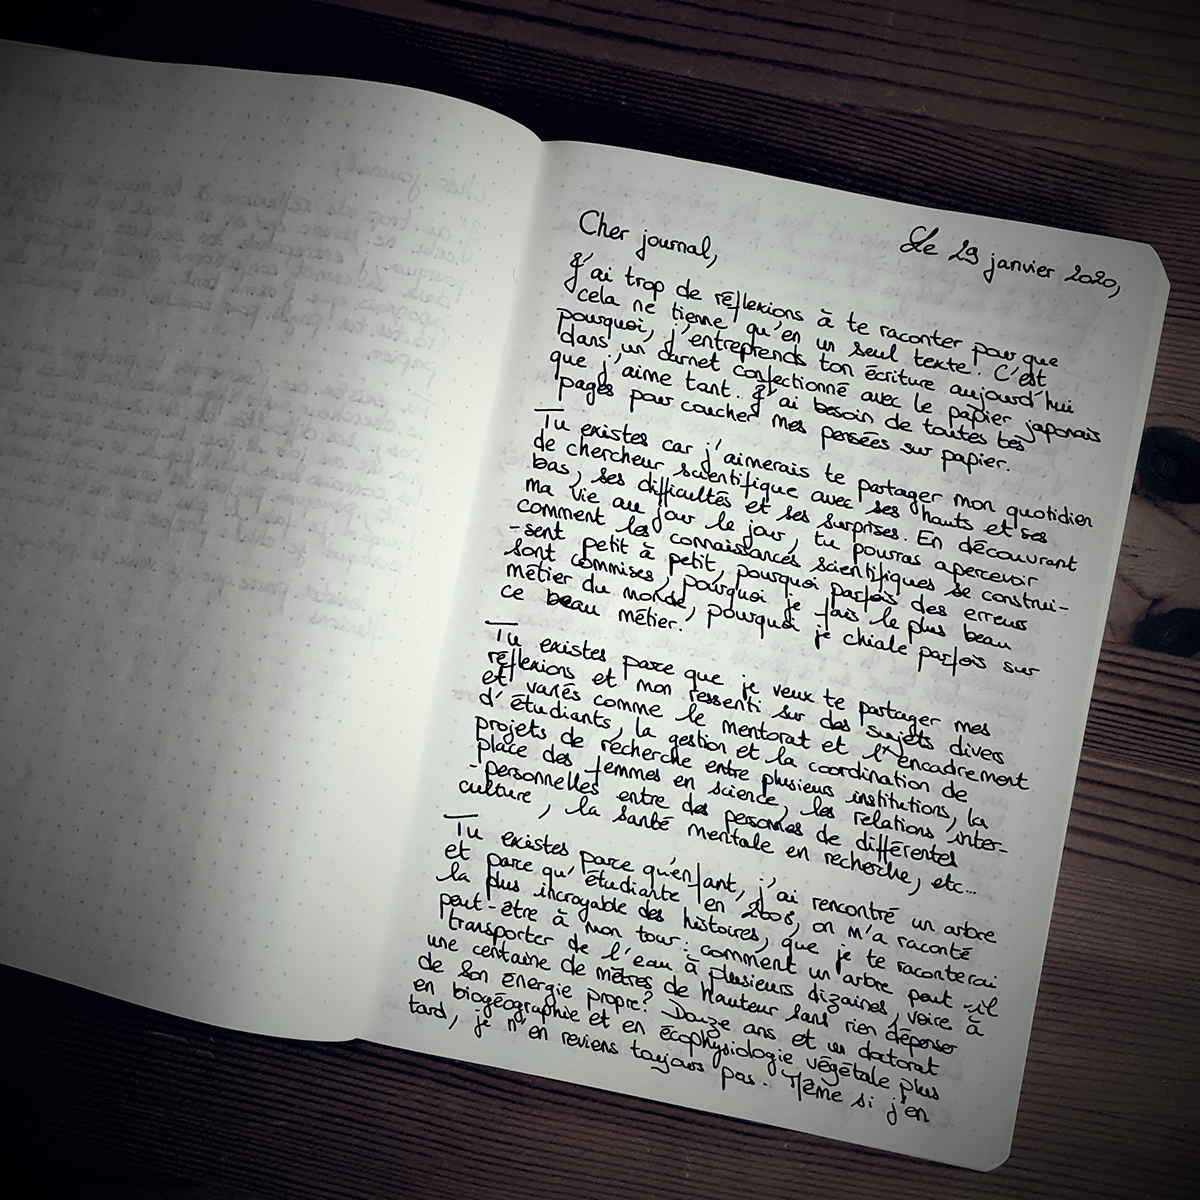 Le 29 janvier 2020,
Cher journal,
J'ai trop de réflexions à te raconter pour que
cela ne tienne qu'en un seul texte! C'est
pourquoi, j'entreprends ton écriture aujourd'hui
dans un carnet confectionné avec le papier japonais
que j'aime tant. J'ai besoin de toutes tes
pages pour coucher mes pensées sur papier.
Tu existes car j'aimerais te partager mon quotidien
de chercheur scientifique avec ses hauts et ses
bas, ses difficultés et ses surprises. En découvrant
ma vie au jour le jour, tu pourras apercevoir
comment les connaissances scientifiques se construi-
-sent petit à petit, pourquoi parfois des erreurs
sont commises, pourquoi je fais le plus beau
métier du monde, pourquoi je chiale parfois sur
ce beau métier.
Tu existes parce que je veux te partager mes
réflexions et mon ressenti sur des sujets divers
et variés comme le mentorat et l'encadrement
d'étudiants, la gestion et la coordination de
projets de recherche entre plusieurs institutions, la
place des femmes en science, les relations inter-
-personnelles entre des personnes de différentes
culture, la santé mentale en recherche, etc...
Tu existes parce qu'enfant, j'ai rencontré un arbre
et parce qu'étudiante en 2008, on m'a raconté
la plus incroyable des histoires, que je te raconterai
peut-être à mon tour: comment un arbre peut-il
transporter de l'eau à plusieurs dizaines, voire à
une centaine de mètres de hauteur sans rien dépenser
de son énergie propre? Douze ans et un doctorat
en biogéographie et en écophysiologie végétale plus
tard, je n'en reviens toujours pas. Même si j'en